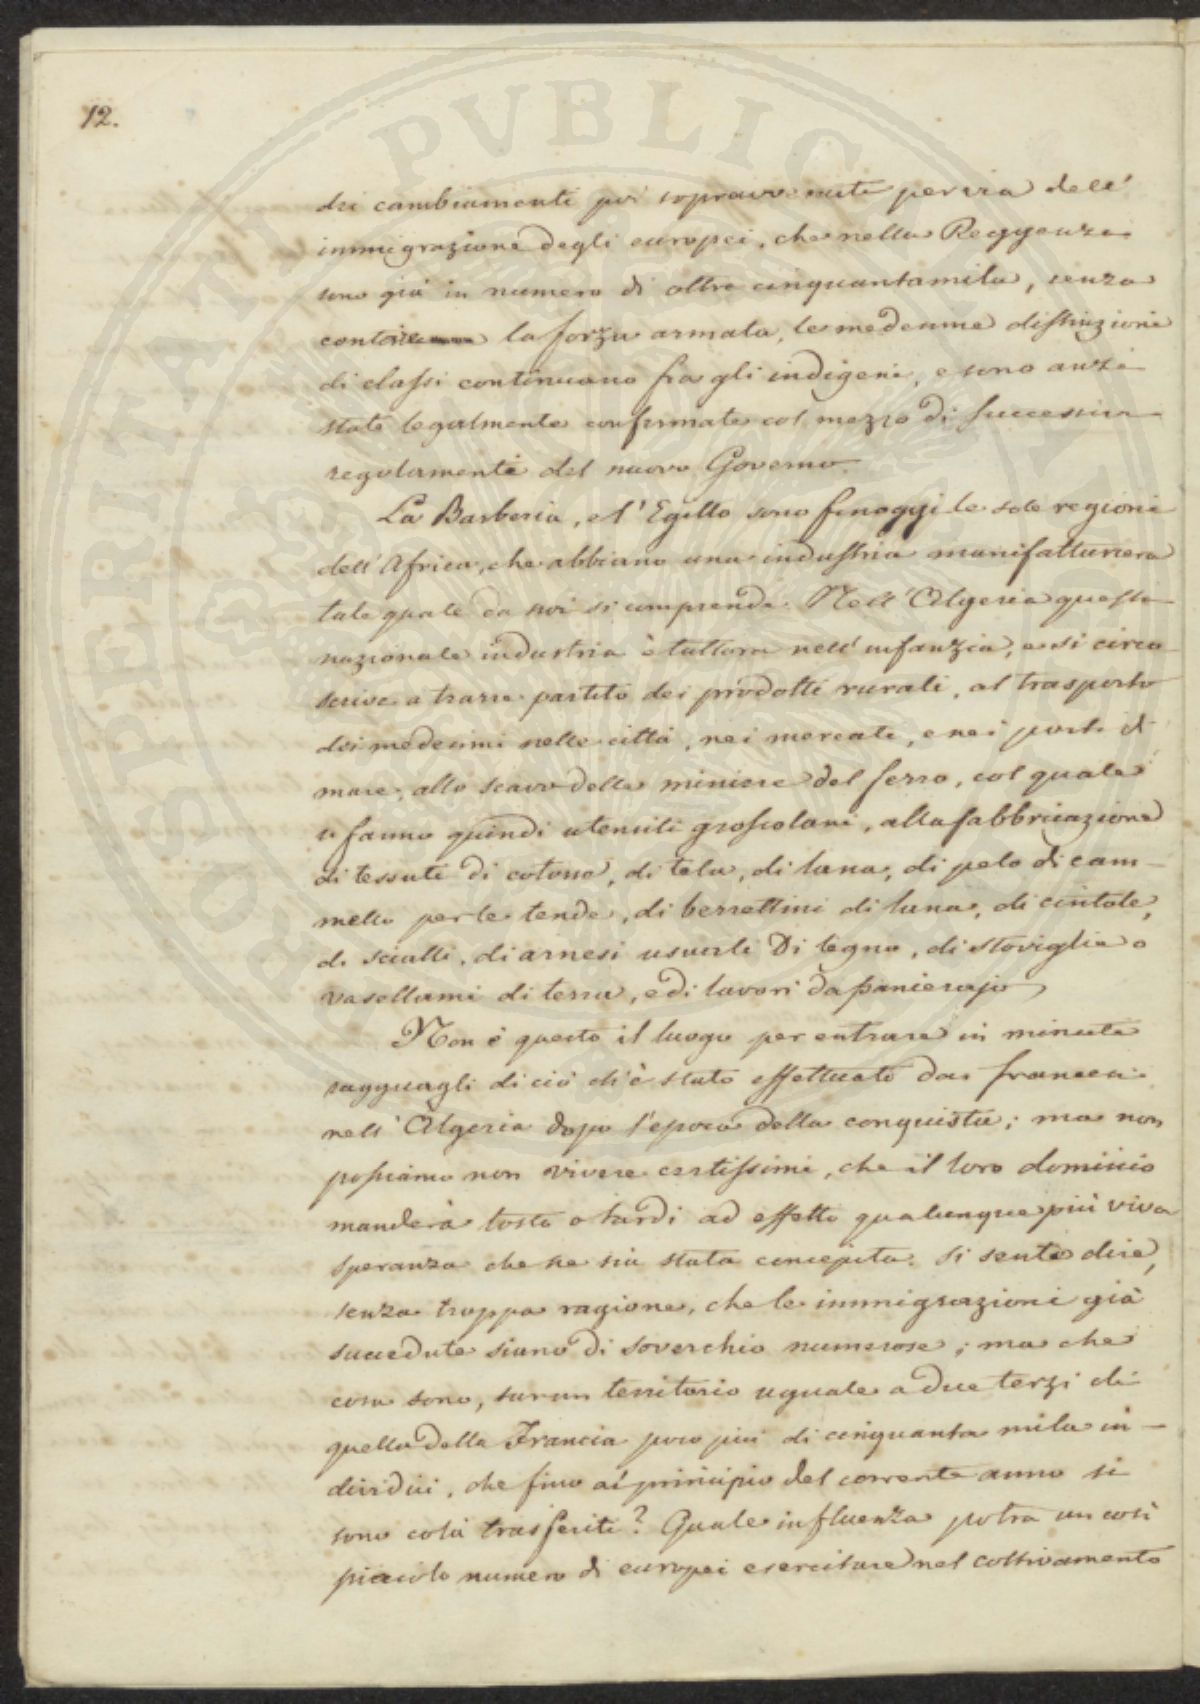 12.
dei cambiamenti poi sopravvenuti per via dell'
immigrazione degli europei, che nella Reggenza
sono già in numero di oltre cinquantamila, senza
contare la forza armata, le medesime distinzioni
di classi continuano fra gli indigeni, e sono anzi
state legalmente confermate col mezzo di successivi
regolamenti del nuovo Governo.
La Barberia, e l'Egitto sono finoggi le sole regioni
dell'Africa, che abbiano una industria manifatturiera
tale quale da noi si comprende. Nell'Algeria questa
nazionale industria è tuttora nell'infanzia, e si circo
scrive a trarre partito dei prodotti rurali, al trasporto
dei medesimi nelle città, nei mercati, e nei porti di
mare, allo scavo delle miniere del ferro, col quale
si fanno quindi utensili grossolani, alla fabbricazione
di tessuti di cotone, di tela, di lana, di pelo di cam-
mello per le tende, di berrettini di lana, di cintole,
di scialli, di arnesi usuali di legno, di stoviglie o
vasellami di terra, e di lavori da panierajo
Non è questo il luogo per entrare in minuti
ragguagli di ciò ch'è stato effettuato dai francesi
nell'Algeria dopo l'epoca della conquista; ma non
possiamo non vivere certissimi, che il loro dominio
manderà tosto o tardi ad effetto qualunque più viva
speranza che ne sia stata concepita. Si sente dire,
senza troppa ragione, che le immigrazioni già
succedute siano di soverchio numerose; ma che
cosa sono, sur un territorio uguale a due terzi di
quello della Francia poco più di cinquanta mila in-
dividui, che fino al principio del corrente anno si
sono colà trasferiti? Quale influenza potrà un così
piccolo numero di europei esercitare nel coltivamento
PROSPERITATI PVBLICAE